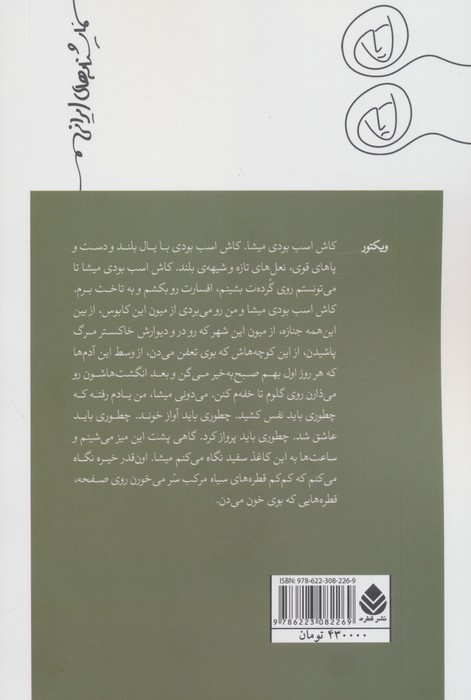 نمایشنامه‌های ایرانی
ویکتور
کاش اسب بودی میشا. کاش اسب بودی با یال بلند و دست و
پاهای قوی، نعل‌های تازه و شیهه‌ی بلند. کاش اسب بودی میشا تا
می‌تونستم روی گُرده‌ت بشینم، افسارت رو بکشم و به تاخت برم.
کاش اسب بودی میشا و من رو می‌بردی از میون این کابوس، از بین
این‌همه جنازه، از میون این شهر که رو در و دیوارش خاکستر مرگ
پاشیدن، از این کوچه‌هاش که بوی تعفن می‌دن، از وسط این آدم‌ها
که هر روز اول بهم صبح‌به‌خیر می‌گن و بعد انگشت‌هاشون رو
می‌ذارن روی گلوم تا خفه‌م کنن. می‌دونی میشا، من یادم رفته که
چطوری باید نفس کشید. چطوری باید آواز خوند. چطوری باید
عاشق شد. چطوری باید پرواز کرد. گاهی پشت این میز می‌شینم و
ساعت‌ها به این کاغذ سفید نگاه می‌کنم میشا. اون‌قدر خیره نگاه
می‌کنم که کم‌کم قطره‌های سیاه مرکب سُر می‌خورن روی صفحه،
قطره‌هایی که بوی خون می‌دن.
ISBN: 978-622-308-226-9
9 786223 082269
نشر قطره
۴۳۰۰۰۰ تومان